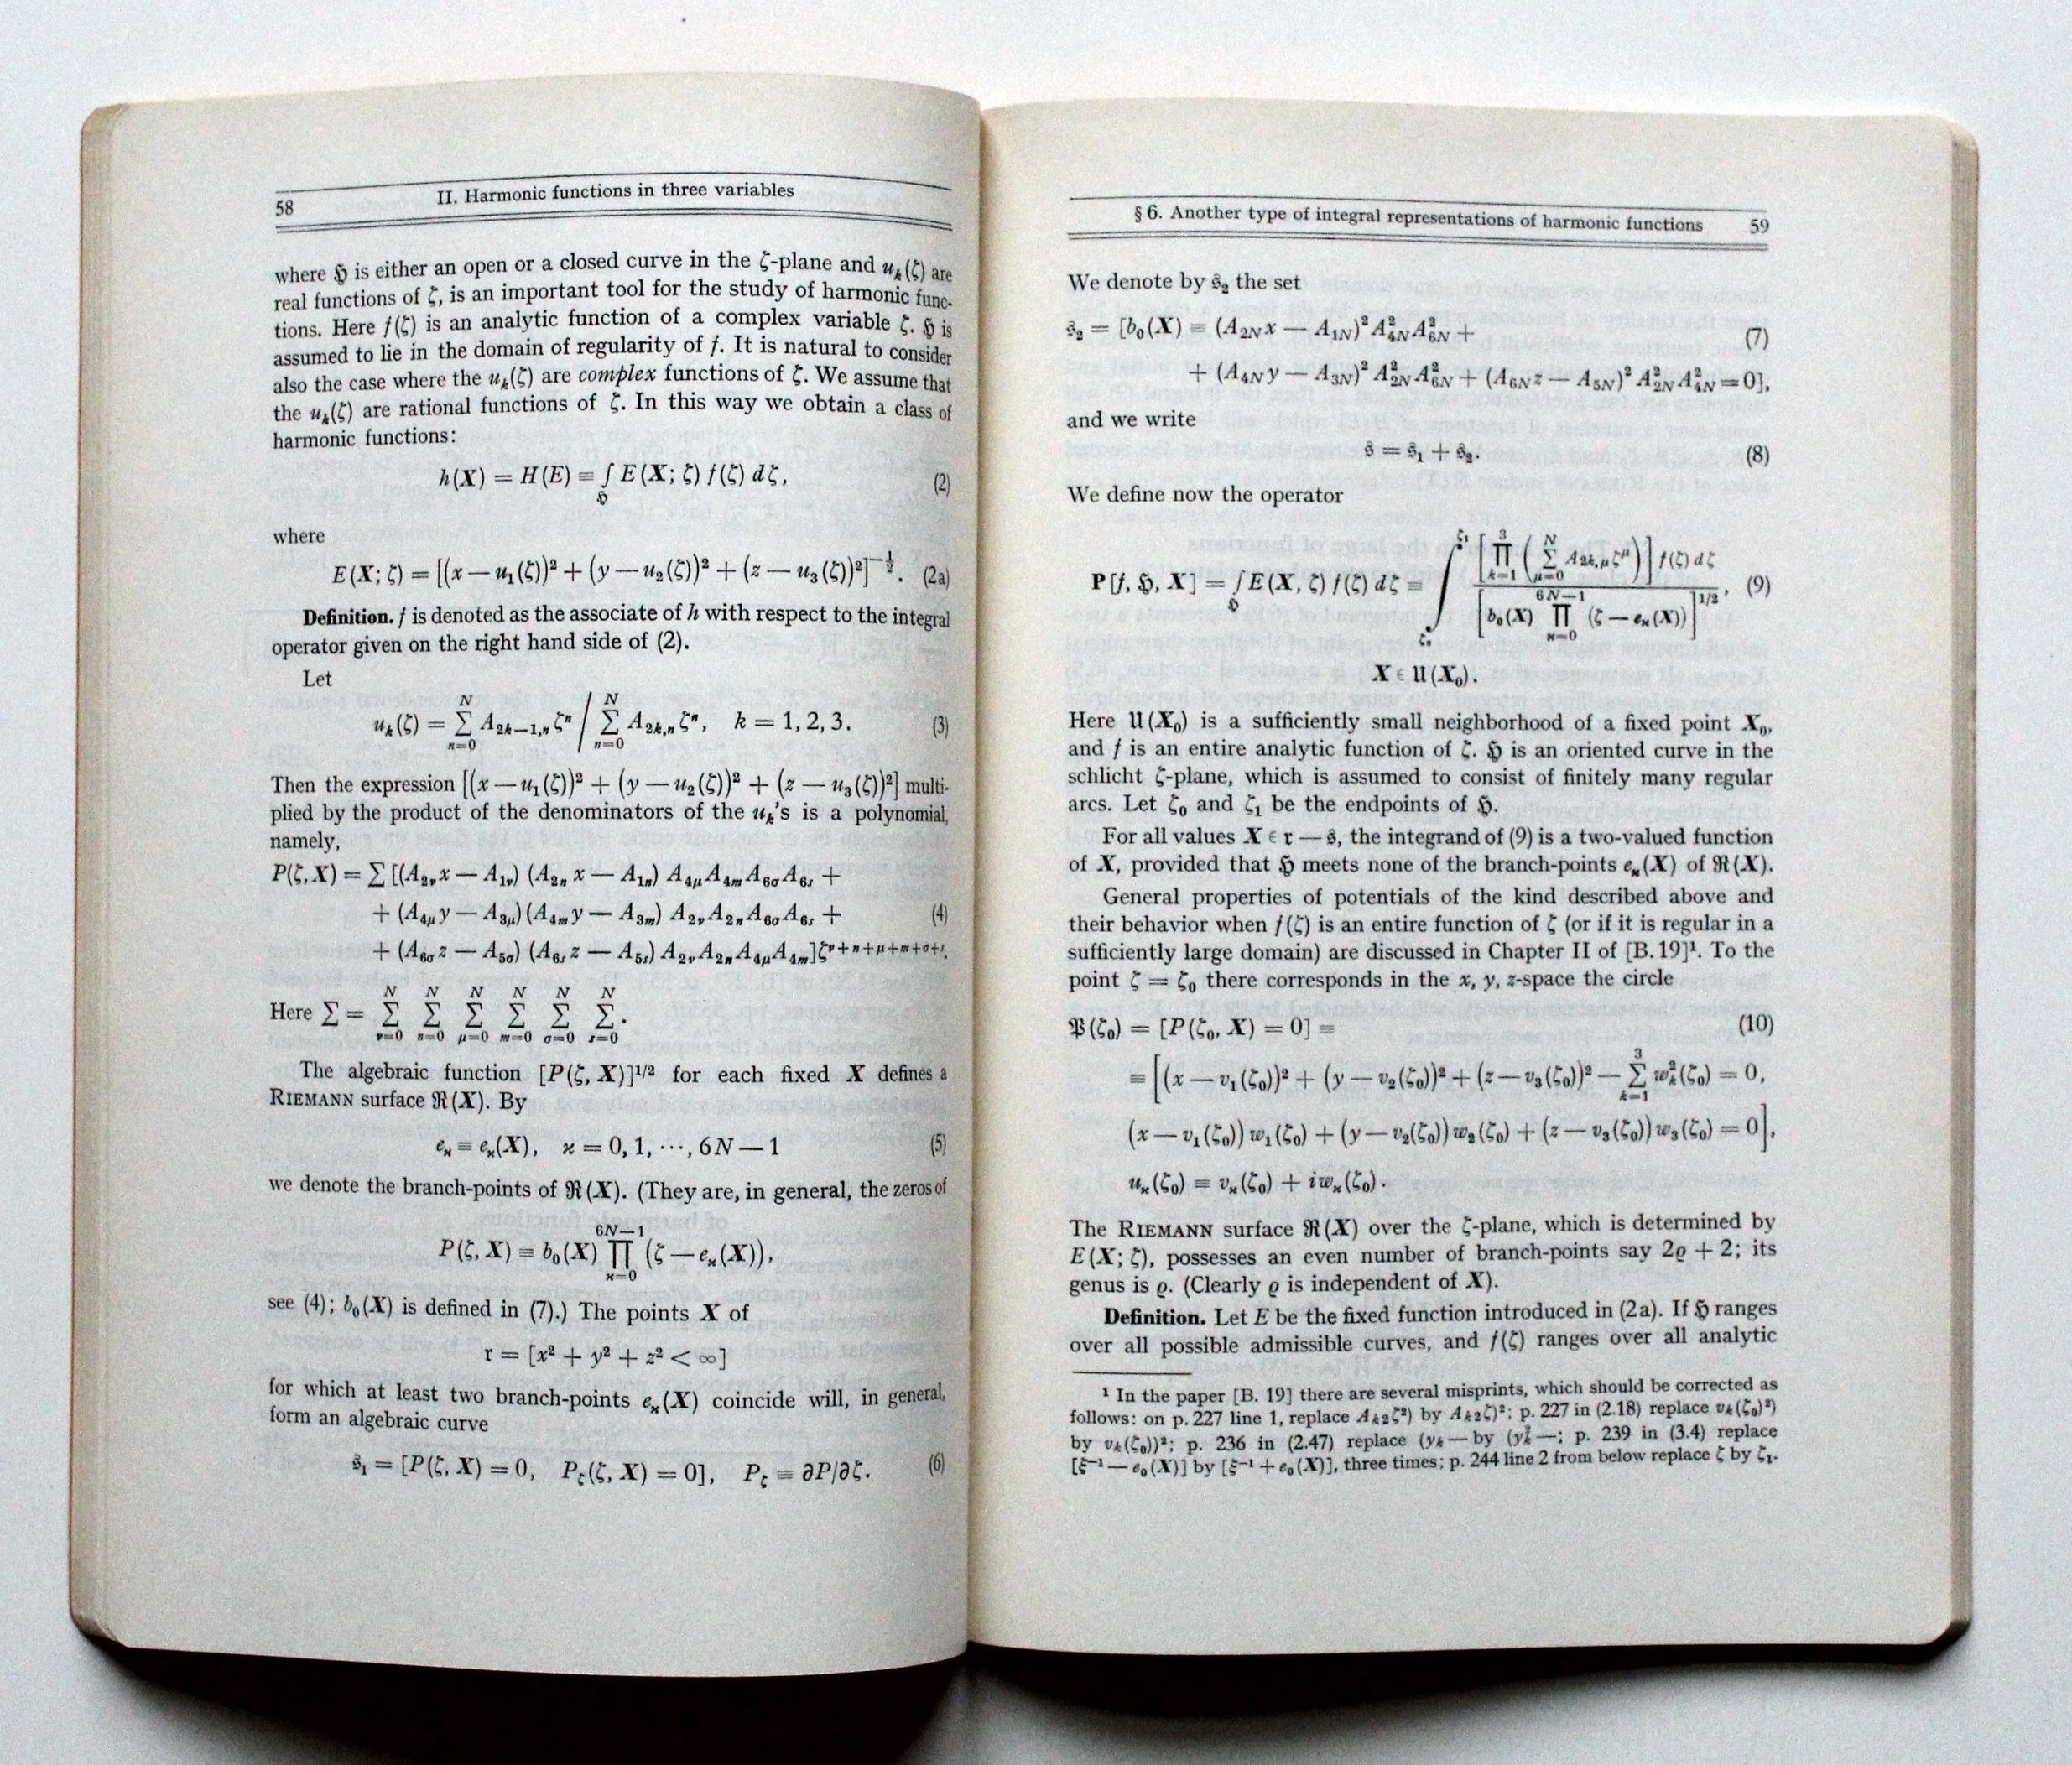 58
II. Harmonic functions in three variables
where 𝔥 is either an open or a closed curve in the ζ-plane and u_k(ζ) are
real functions of ζ, is an important tool for the study of harmonic func-
tions. Here f(ζ) is an analytic function of a complex variable ζ. 𝔥 is
assumed to lie in the domain of regularity of f. It is natural to consider
also the case where the u_k(ζ) are complex functions of ζ. We assume that
the u_k(ζ) are rational functions of ζ. In this way we obtain a class of
harmonic functions:
h(X) = H(E) ≡ ∫_𝔥 E(X; ζ) f(ζ) dζ, (2)
where
E(X; ζ) = [(x − u_1(ζ))² + (y − u_2(ζ))² + (z − u_3(ζ))²]^{−1/2}. (2a)
Definition. f is denoted as the associate of h with respect to the integral
operator given on the right hand side of (2).
Let
u_k(ζ) = ∑_{n=0}^{N} A_{2k−1,n} ζ^n / ∑_{n=0}^{N} A_{2k,n} ζ^n, k = 1, 2, 3. (3)
Then the expression [(x − u_1(ζ))² + (y − u_2(ζ))² + (z − u_3(ζ))²] multi-
plied by the product of the denominators of the u_k's is a polynomial,
namely,
P(ζ, X) = ∑ [(A_{2ν} x − A_{1ν}) (A_{2n} x − A_{1n}) A_{4μ} A_{4m} A_{6σ} A_{6s} +
+ (A_{4μ} y − A_{3μ}) (A_{4m} y − A_{3m}) A_{2ν} A_{2n} A_{6σ} A_{6s} + (4)
+ (A_{6σ} z − A_{5σ}) (A_{6s} z − A_{5s}) A_{2ν} A_{2n} A_{4μ} A_{4m}] ζ^{ν+n+μ+m+σ+s}.
Here ∑ = ∑_{ν=0}^{N} ∑_{n=0}^{N} ∑_{μ=0}^{N} ∑_{m=0}^{N} ∑_{σ=0}^{N} ∑_{s=0}^{N}.
The algebraic function [P(ζ, X)]^{1/2} for each fixed X defines a
RIEMANN surface ℜ(X). By
e_ϰ ≡ e_ϰ(X), ϰ = 0, 1, ···, 6N − 1 (5)
we denote the branch-points of ℜ(X). (They are, in general, the zeros of
P(ζ, X) ≡ b_0(X) ∏_{ϰ=0}^{6N−1} (ζ − e_ϰ(X)),
see (4); b_0(X) is defined in (7).) The points X of
𝔯 = [x² + y² + z² < ∞]
for which at least two branch-points e_ϰ(X) coincide will, in general,
form an algebraic curve
𝔰_1 = [P(ζ, X) = 0, P_ζ(ζ, X) = 0], P_ζ ≡ ∂P/∂ζ. (6)
§ 6. Another type of integral representations of harmonic functions
59
We denote by 𝔰_2 the set
𝔰_2 = [b_0(X) ≡ (A_{2N} x − A_{1N})² A²_{4N} A²_{6N} + (7)
+ (A_{4N} y − A_{3N})² A²_{2N} A²_{6N} + (A_{6N} z − A_{5N})² A²_{2N} A²_{4N} = 0],
and we write
𝔰 = 𝔰_1 + 𝔰_2. (8)
We define now the operator
P[f, 𝔥, X] = ∫_𝔥 E(X, ζ) f(ζ) dζ = ∫_{ζ_0}^{ζ_1} [∏_{k=1}^{3} (∑_{μ=0}^{N} A_{2k,μ} ζ^μ)] f(ζ) dζ / [b_0(X) ∏_{ϰ=0}^{6N−1} (ζ − e_ϰ(X))]^{1/2}, (9)
X ϵ 𝔘(X_0).
Here 𝔘(X_0) is a sufficiently small neighborhood of a fixed point X_0,
and f is an entire analytic function of ζ. 𝔥 is an oriented curve in the
schlicht ζ-plane, which is assumed to consist of finitely many regular
arcs. Let ζ_0 and ζ_1 be the endpoints of 𝔥.
For all values X ϵ 𝔯 − 𝔰, the integrand of (9) is a two-valued function
of X, provided that 𝔥 meets none of the branch-points e_ϰ(X) of ℜ(X).
General properties of potentials of the kind described above and
their behavior when f(ζ) is an entire function of ζ (or if it is regular in a
sufficiently large domain) are discussed in Chapter II of [B. 19]¹. To the
point ζ = ζ_0 there corresponds in the x, y, z-space the circle
𝔓(ζ_0) = [P(ζ_0, X) = 0] ≡ (10)
≡ [(x − v_1(ζ_0))² + (y − v_2(ζ_0))² + (z − v_3(ζ_0))² − ∑_{k=1}^{3} w_k²(ζ_0) = 0,
(x − v_1(ζ_0)) w_1(ζ_0) + (y − v_2(ζ_0)) w_2(ζ_0) + (z − v_3(ζ_0)) w_3(ζ_0) = 0],
u_ϰ(ζ_0) ≡ v_ϰ(ζ_0) + i w_ϰ(ζ_0).
The RIEMANN surface ℜ(X) over the ζ-plane, which is determined by
E(X; ζ), possesses an even number of branch-points say 2ϱ + 2; its
genus is ϱ. (Clearly ϱ is independent of X).
Definition. Let E be the fixed function introduced in (2a). If 𝔥 ranges
over all possible admissible curves, and f(ζ) ranges over all analytic
¹ In the paper [B. 19] there are several misprints, which should be corrected as
follows: on p. 227 line 1, replace A_{k2}ζ²) by A_{k2}ζ)²; p. 227 in (2.18) replace v_k(ζ_0)²)
by v_k(ζ_0))²; p. 236 in (2.47) replace (y_k — by (y_k² —; p. 239 in (3.4) replace
[ξ^{−1} − e_0(X)] by [ξ^{−1} + e_0(X)], three times; p. 244 line 2 from below replace ζ by ζ_1.